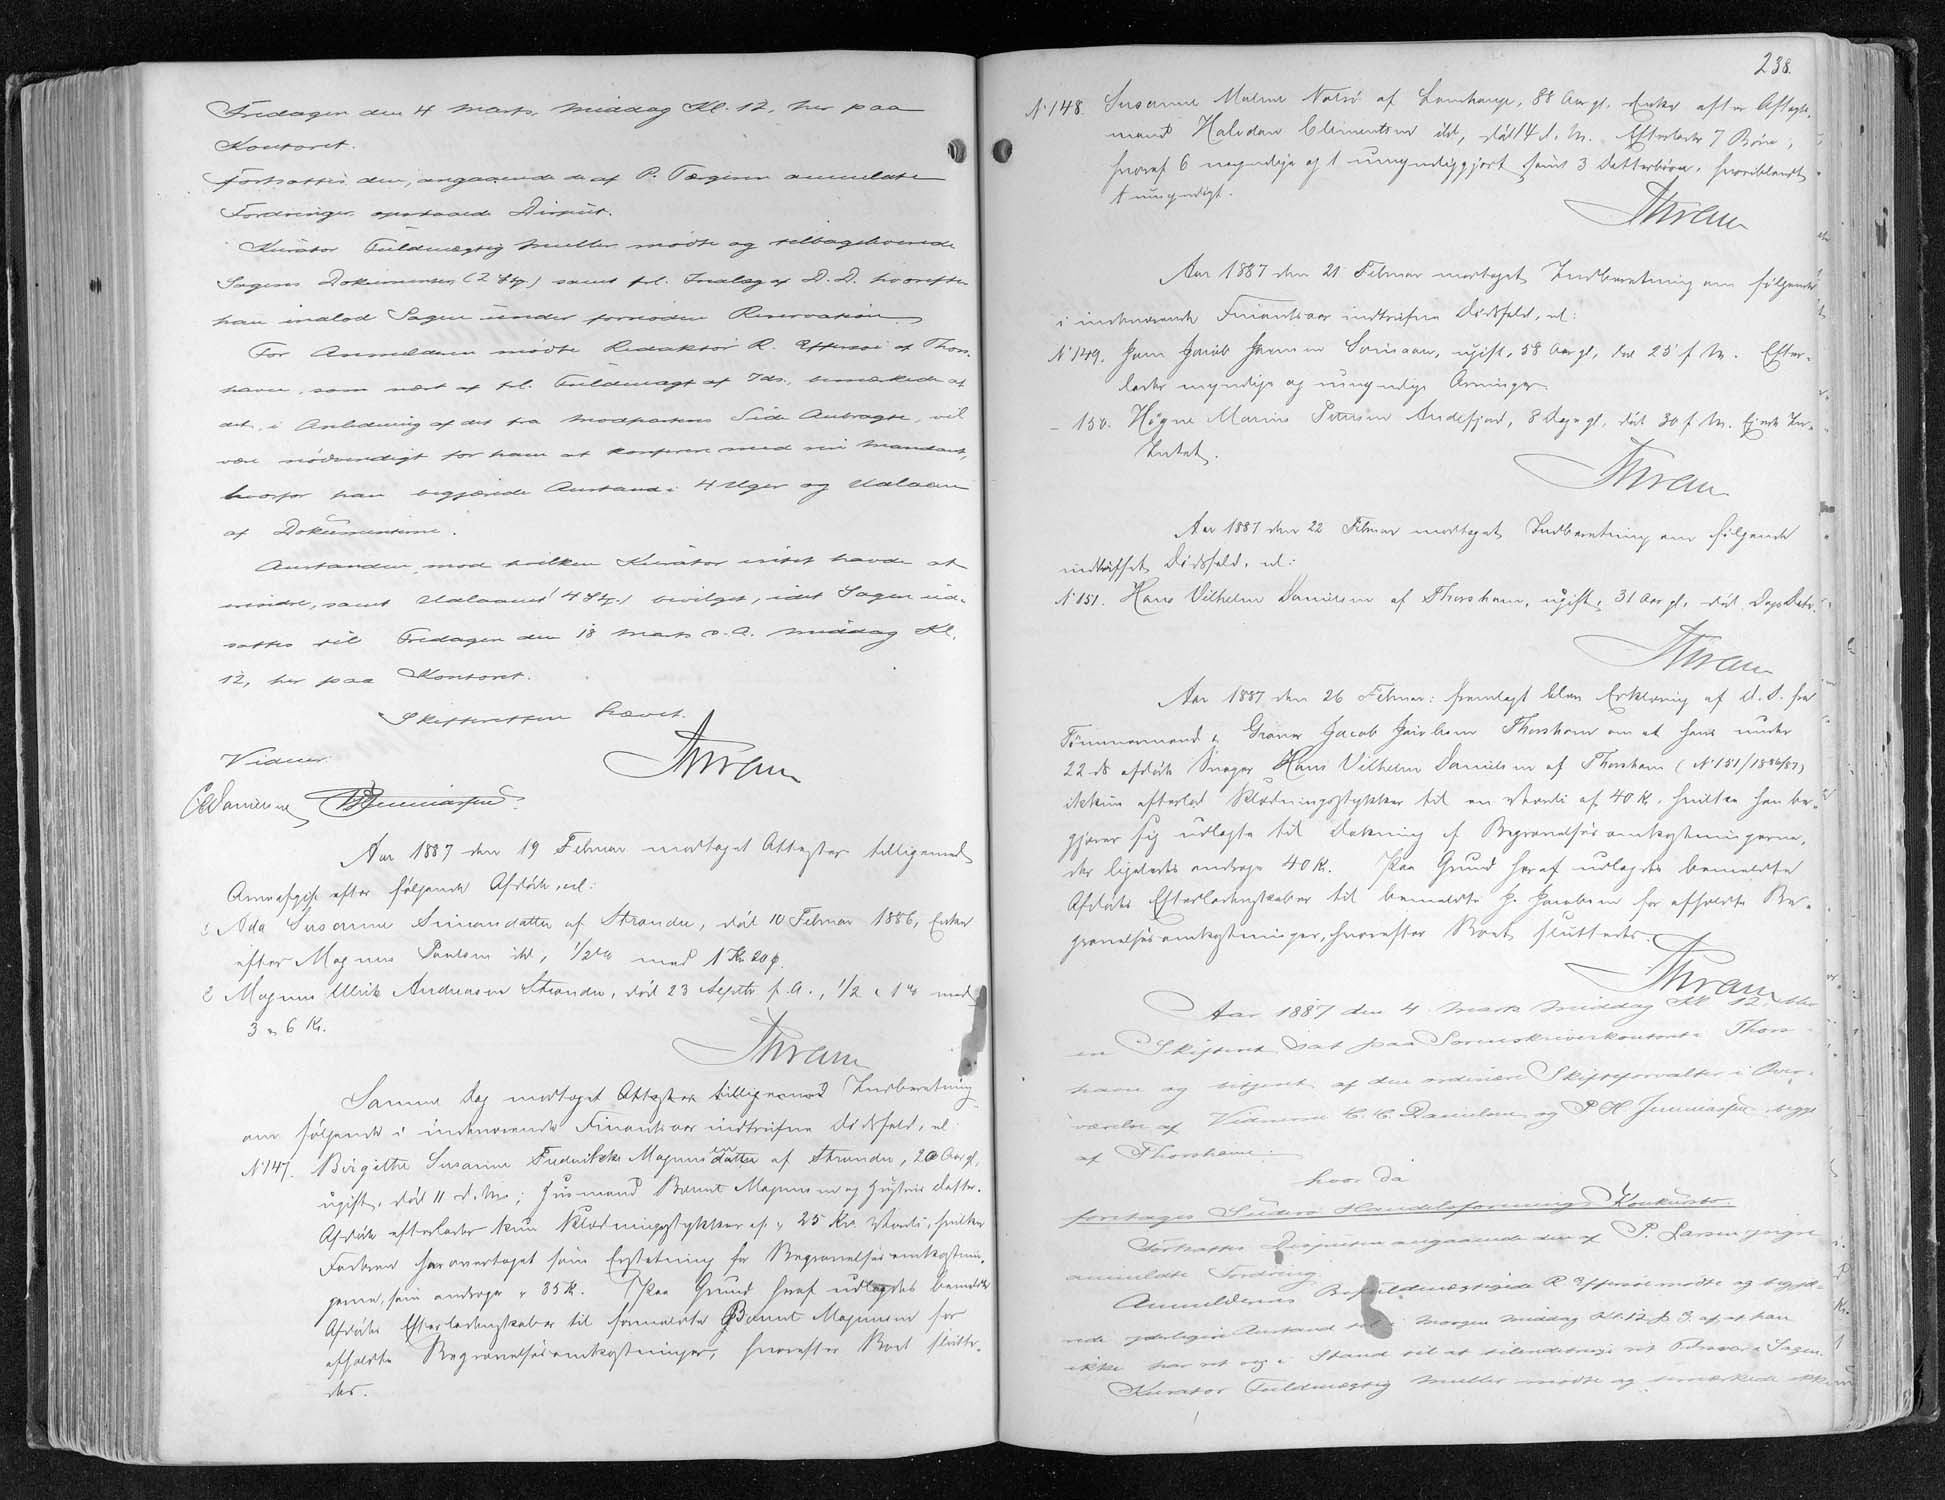 Fredagen den 4 Marts, Middag Kl. 12, her paa
Kontoret.
Fortsattes den, angaaende de af P. anmeldte
Fordringer opstaaede Disput.
Kurator Fuldmægtig Müller mødte og tilbageleverede
Sagens Dokumenter (2 Stk.) samt frl. Indlæg af D. D. hvorefter
han indlod Sagen under fornøden Reservation.
For Anmelderen mødte Redaktør R. Effersøe af Thors-
havn, som ifl. Fuldmagt af 7 ds., bemærkede at
det, i Anledning af det fra Modpartens Side Anbragte, vil
være nødvendigt for ham at konferere med sin Mandant,
hvorfor han begjærede Anstand i 4 Uger og Udlaan
af Dokumenterne.
Anstanden, mod hvilken Kurator intet havde at
erindre, samt Udlaanet (4 Stk.) bevilget, idet Sagen ud-
sattes til Fredagen den 18 Marts d. A. Middag Kl.
12, her paa Kontoret.
Skifteretten hævet.
Vidner:
Thram
CDanielsen
Aar 1887 den 19 Februar modtaget Attester tilligemed
Arveafgift efter følgende Afdøde, nl:
1 Ada Susanne Simonsdatter af Strander, død 10 Februar 1886, Enke
efter Magnus Poulsen ibd, 1/2 % med 1 Kr. 20 ø.
2 Magnus Ulrik Andreasen Strander, død 23 Septbr f. A., 1/2 & 1 % med
3 & 6 Kr.
Thram
Samme Dag modtaget Attester tilligemed Indberetning
om følgende i indeværende Finantsaar indtrufne Dødsfald, nl
N° 147. Birgithe Susanne Frederikke Magnusdatter af Strander, 20 Aar gl,
ugift, død 11 d. M.; Husmand Bernt Magnussen og Hustrus Datter.
Afdøde efterlader kun Klædningsstykker af 25 Kr. Værdi, hvilke
Faderen har overtaget som Erstatning for Begravelsesomkostnin-
gerne, som androge 35 K. Paa Grund heraf udlagdes bemeldte
Afdødes Efterladenskaber til formeldte Bernt Magnussen for
afholdte Begravelsesomkostninger, hvorefter Boet slutte-
des.
238.
N° 148. Susanne Malene Nolsø af Lamhauge, 88 Aar gl. Enke efter Aftægts-
mand Halvdan Clementsen ibd, død 14 d. M. Efterlader 7 Børn,
hvoraf 6 myndige og 1 umyndiggjort samt 3 Datterbørn, hvoriblandt
1 umyndigt.
Thram
Aar 1887 den 21 Februar modtaget Indberetning om følgende
i indeværende Finantsaar indtrufne Dødsfald, nl:
N° 149. Hans Jacob, ugift, 58 Aar gl, død 25 f. M. Efter-
lader myndige og umyndige Arvinger
- 150. Høgne Marius Petersen Andefjord, 8 Dage gl, død 30 f. M. Ejede In-
tet.
Thram
Aar 1887 den 22 Februar modtaget Indberetning om følgende
indtruffet Dødsfald, nl:
N° 151. Hans Vilhelm Danielsen af Thorshavn, ugift, 31 Aar gl, død Dags Dato.
Thram
Aar 1887 den 26 Februar: fremlagt blev Erklæring af d. D. fra
Tømmermand & Graver Jacob Jacobsen Thorshavn om at hans under
22 ds afdøde Svoger Hans Vilhelm Danielsen af Thorshavn (N° 151/1886/87)
ikkun efterlod Klædningsstykker til en Værdi af 40 K. hvilke han be-
gjærer sig udlagte til Dækning af Begravelsesomkostningerne,
der ligeledes androge 40 K. Paa Grund heraf udlagdes bemeldte
Afdødes Efterladenskaber til bemeldte J. Jacobsen for afholdte Be-
gravelsesomkostninger, hvorefter Boet sluttedes.
Thram
Aar 1887 den 4 Marts Middag Kl 12, blev
en Skifteret sat paa Sorenskriverkontoret i Thors-
havn og betjent af den ordinære Skifteforvalter i Over-
værelse af Vidnerne C. C. Danielsen og P. H. begge
af Thorshavn:
hvor da
foretages Suderø Handelsforenings Konkursbo.
Fortsattes Disputen angaaende den af P. Larsen yngre
anmeldte Fordring.
Anmelderens Befuldmægtigede R Effersøe mødte og begjæ-
rede yderligere Anstand til i Morgen Middag Kl. 12 p. G. af, at han
ikke har set sig i Stand til at tilendebringe sit Tilsvar i Sagen.
Kurator Fuldmægtig Müller mødte og bemærkede ikke